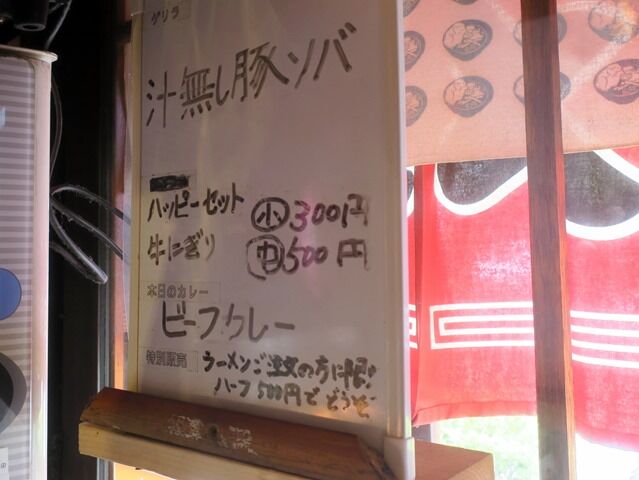 ゲリラ
汁無し豚ソバ
ハッピーセット ㊥小 300円
牛にぎり 中 500円
本日のカレー
ビーフカレー
特別販売 ラーメンご注文の方に限り
ハーフ500円でどうぞ